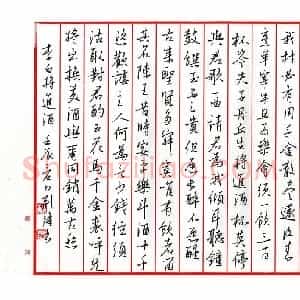 我材必有用千金散盡還復來
烹羊宰牛且為樂會須一飲三百
杯岑夫子丹丘生將進酒杯莫停
與君歌一曲請君為我傾耳聽鐘
鼓饌玉不足貴但願長醉不願醒
古來聖賢多寂寞惟有飲者留
其名陳王昔時宴平樂斗酒十千
恣歡謔主人何為言少錢徑須
沽取對君酌五花馬千金裘呼兒
將出換美酒與爾同銷萬古愁
李白將進酒 壬辰